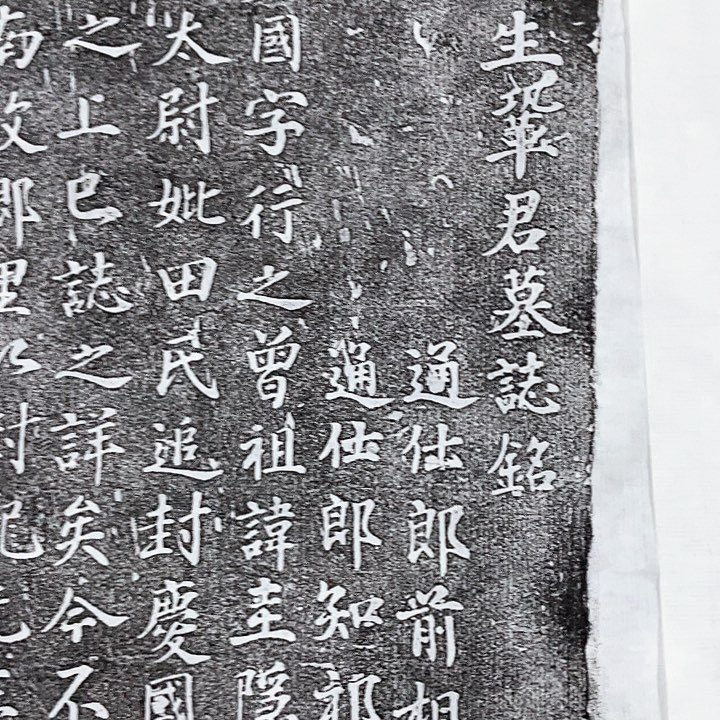 生鞏君墓誌銘
通仕郎前相
通仕郎知祁
國字行之曾祖諱圭隱
太尉妣田氏追封慶國
之上巳誌之詳矣今不